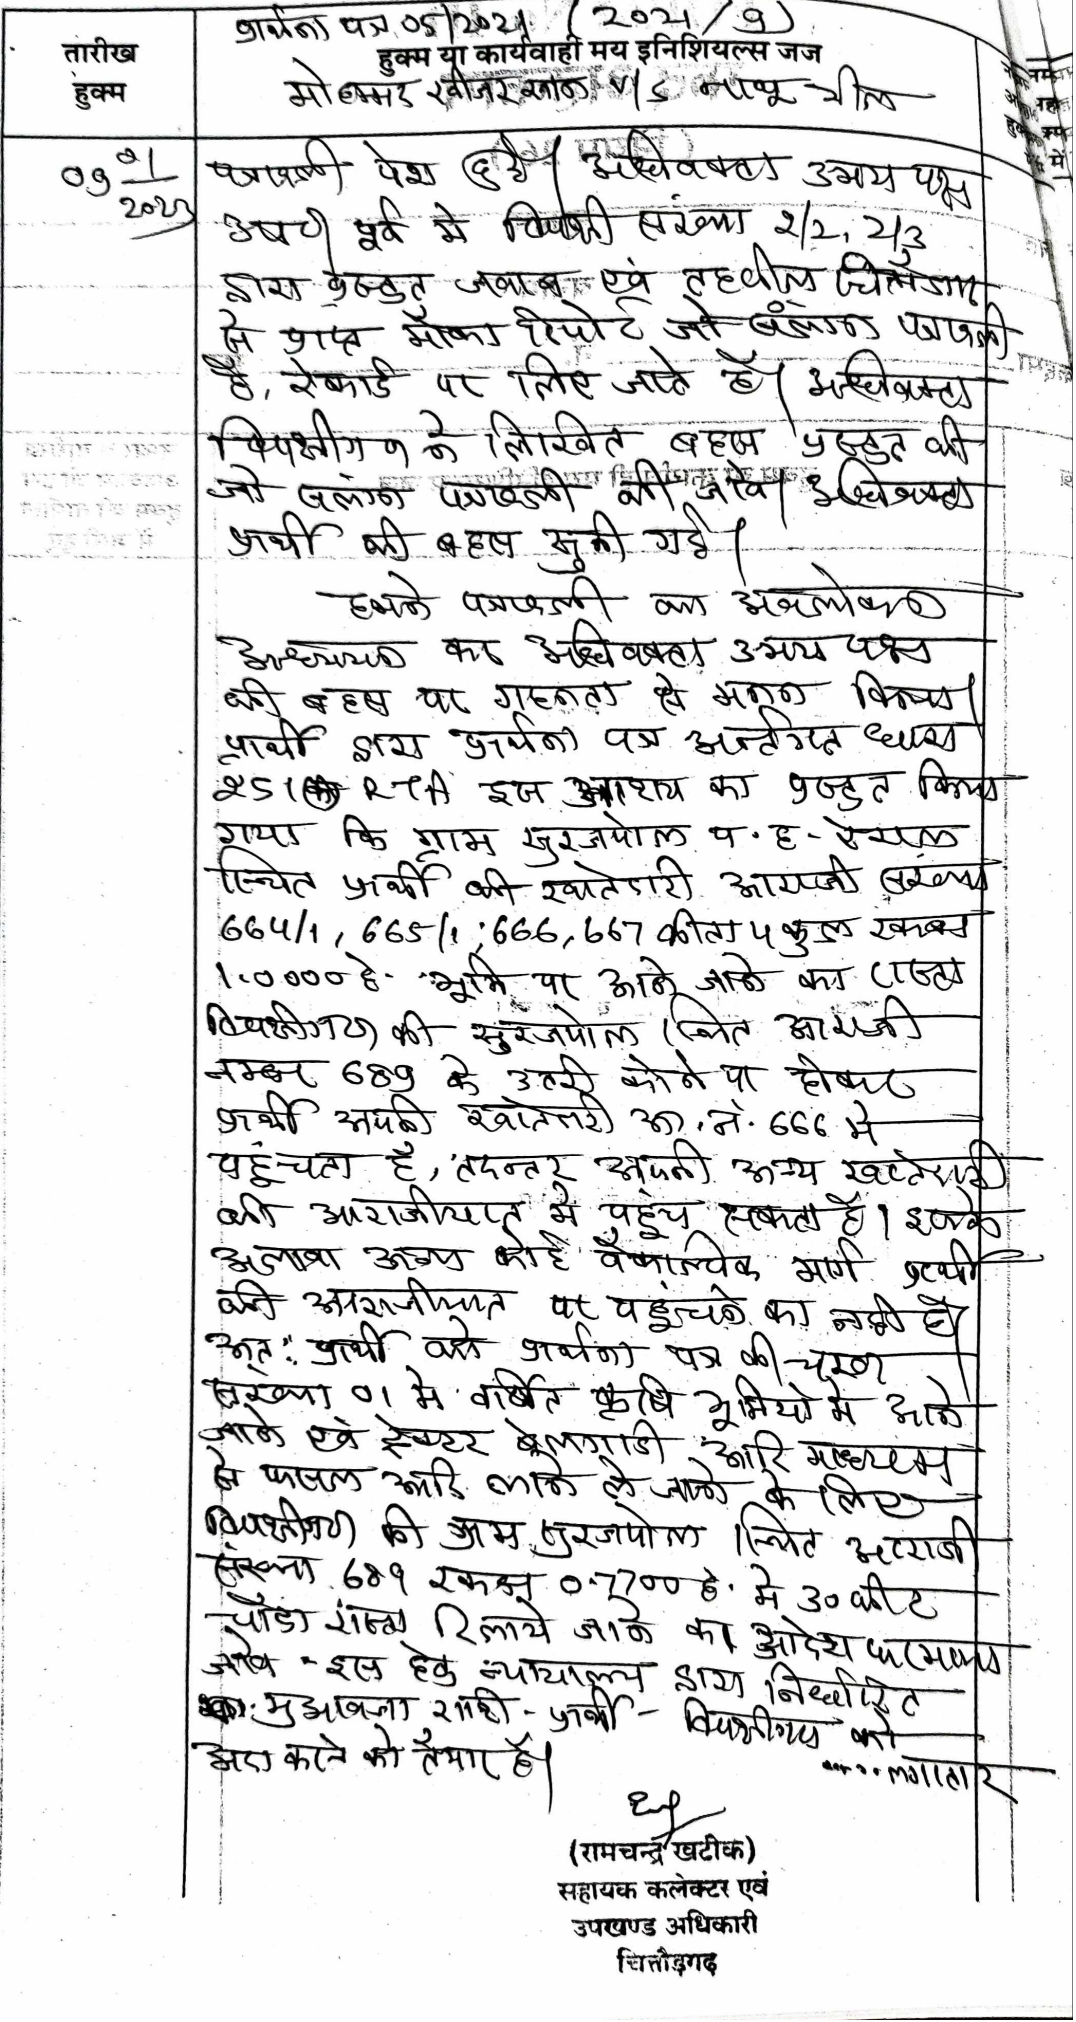 प्रार्थना पत्र 05/2021 (2021/9)
तारीख हुक्म
हुक्म या कार्यवाही मय इनिशियल्स जज
मोहम्मद खीजर खान V/S नाथू भील
09/01/2023
पत्रावली पेश हुई। अधिवक्ता उभय पक्ष
उप०। पूर्व मे विपक्षी संख्या 2/2, 2/3
द्वारा प्रस्तुत जवाब एवं तहसील चित्तौडगढ
से प्राप्त मौका रिपोर्ट जो संलग्न पत्रावली
है, रेकार्ड पर लिए जाते है। अधिवक्ता
विपक्षीगण ने लिखित बहस प्रस्तुत की
जो संलग्न पत्रावली की जावे। अधिवक्ता
प्रार्थी की बहस सुनी गई।
हमने पत्रावली का अवलोकन
अध्ययन कर अधिवक्ता उभय पक्ष
की बहस पर गहनता से मनन किया।
प्रार्थी द्वारा प्रार्थना पत्र अन्तर्गत धारा
251 RTA इस आशय का प्रस्तुत किया
गया कि ग्राम सुरजपोल प.ह-
स्थित प्रार्थी की खातेदारी आराजी संख्या
664/1, 665/1, 666, 667 कीता 4 कुल रकबा
1.0000 हे. भूमि पर आने जाने का रास्ता
विपक्षीगण की सुरजपोल स्थित आराजी
नम्बर 689 के उत्तरी कोने पर होकर
प्रार्थी अपनी खातेदारी आ.नं. 666 मे
पहुंचता है, तदन्तर अपनी अन्य खातेदारी
की आराजीयात मे पहुंच सकता है। इसके
अलावा अन्य कोई वैकल्पिक मार्ग प्रार्थी
की आराजीयात पर पहुंचने का नही है।
अतः प्रार्थी को प्रार्थना पत्र की चरण
संख्या 01 मे वर्णित कृषि भूमियो मे आने
जाने एवं ट्रेक्टर बैलगाडी आदि माध्यम
से फसल आदि लाने ले जाने के लिए
विपक्षीगण की ग्राम सुरजपोल स्थित आराजी
संख्या 689 रकबा 0.7700 हे. मे 30 फीट
चौडा रास्ता दिलाये जाने का आदेश फरमाया
जावे - इस हेतु न्यायालय द्वारा निर्धारित
मुआवजा राशी - प्रार्थी - विपक्षीगण को
अदा करने को तैयार है।
.....लगातार
(रामचन्द्र खटीक)
सहायक कलेक्टर एवं
उपखण्ड अधिकारी
चित्तौड़गढ़